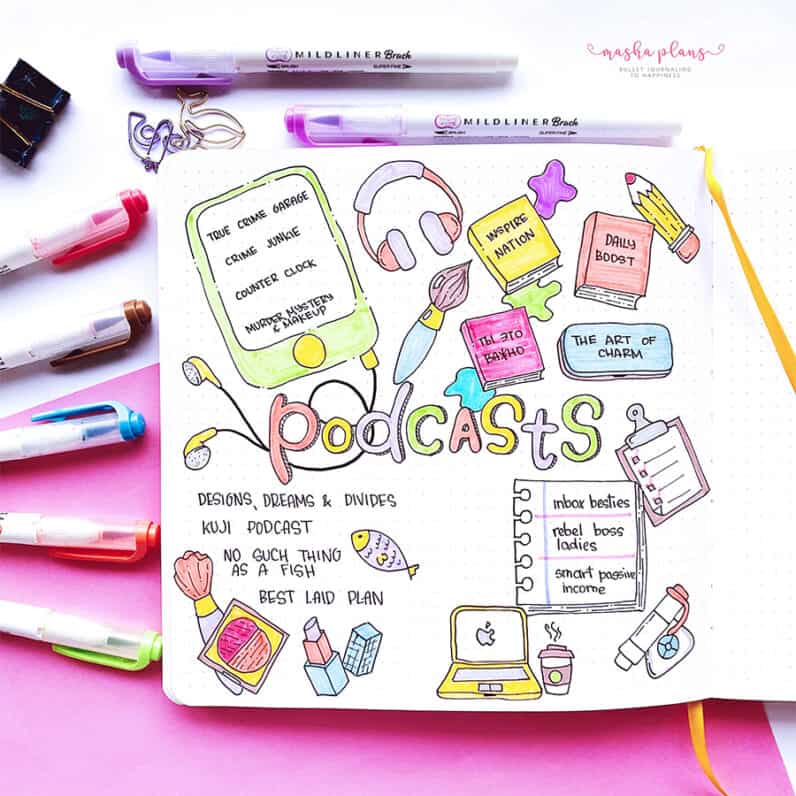 MILDLINER Brush
BRUSH
SUPER FINE
masha plans
BULLET JOURNALING
TO HAPPINESS
MILDLINER Brush
BRUSH
SUPER FINE
TRUE CRIME GARAGE
CRIME JUNKIE
COUNTER CLOCK
MURDER, MYSTERY
& MAKEUP
INSPIRE
NATION
DAILY
BOOST
ТЫ ЭТО
ВАЖНО
THE ART OF
CHARM
PODCASTS
DESIGNS, DREAMS & DIVIDES
KUJI PODCAST
NO SUCH THING
AS A FISH
BEST LAID PLAN
inbox besties
rebel boss
ladies
smart passive
income